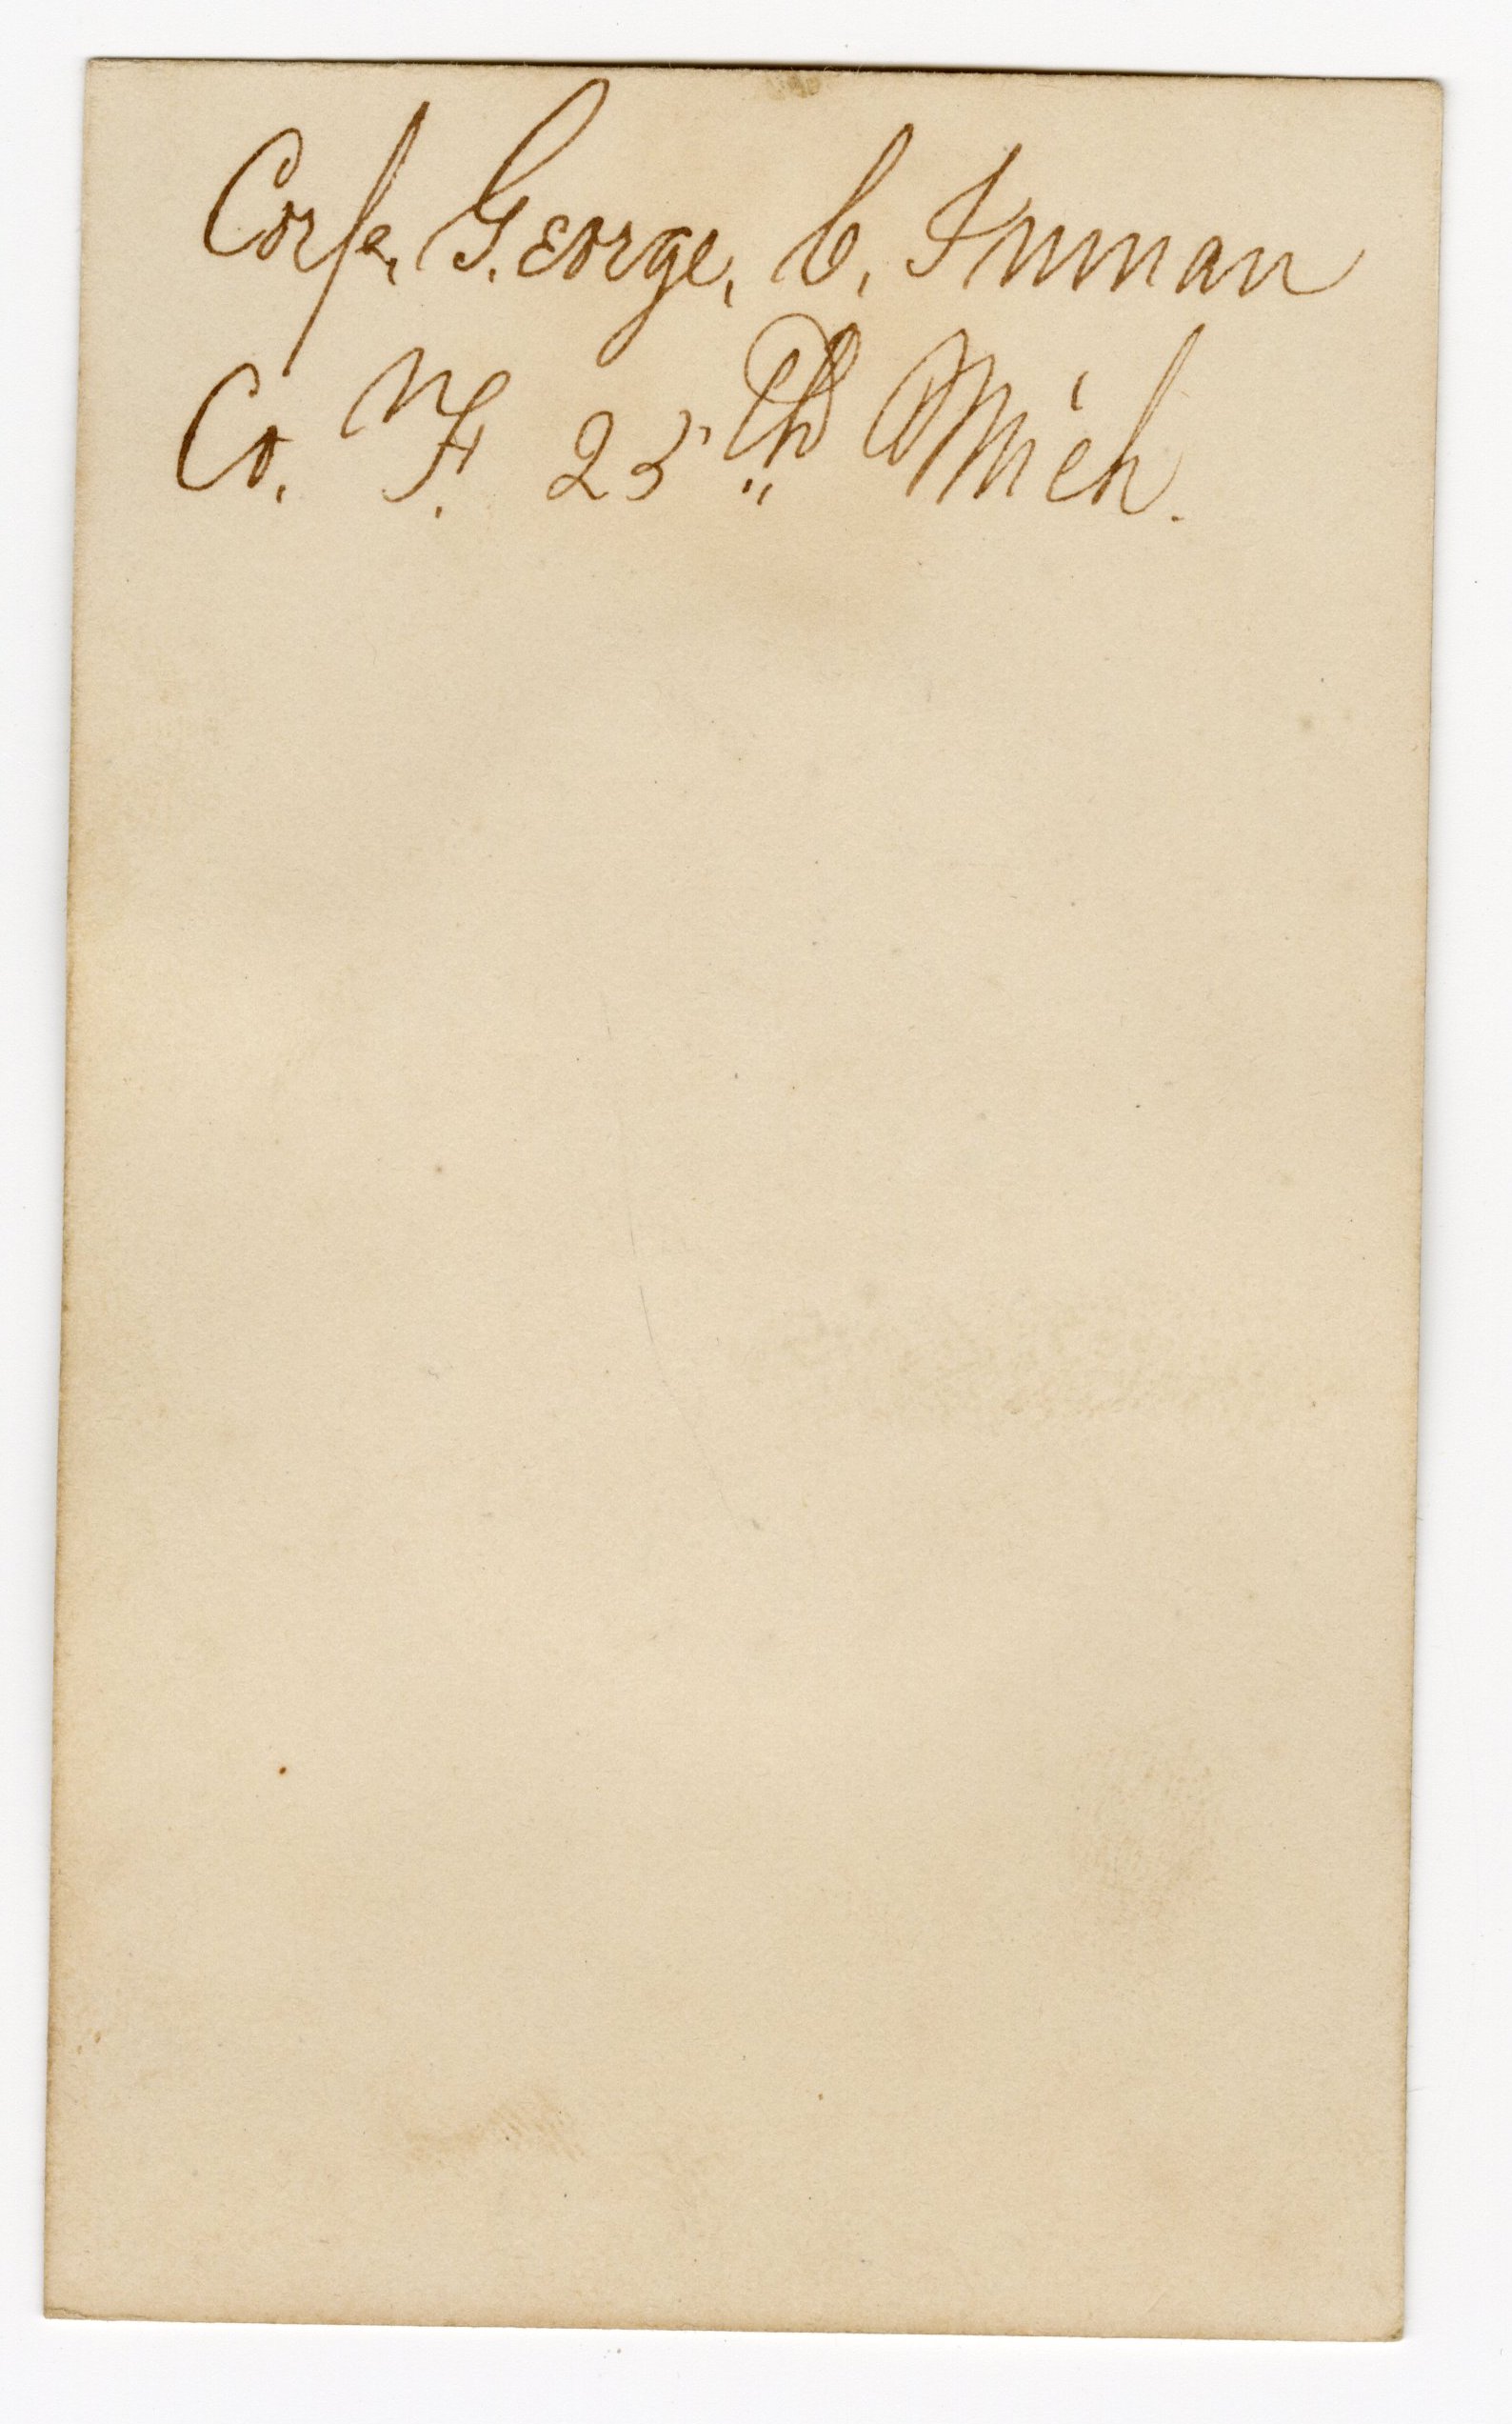 Corp. George, C. Inman
Co. F. 25th Mich.